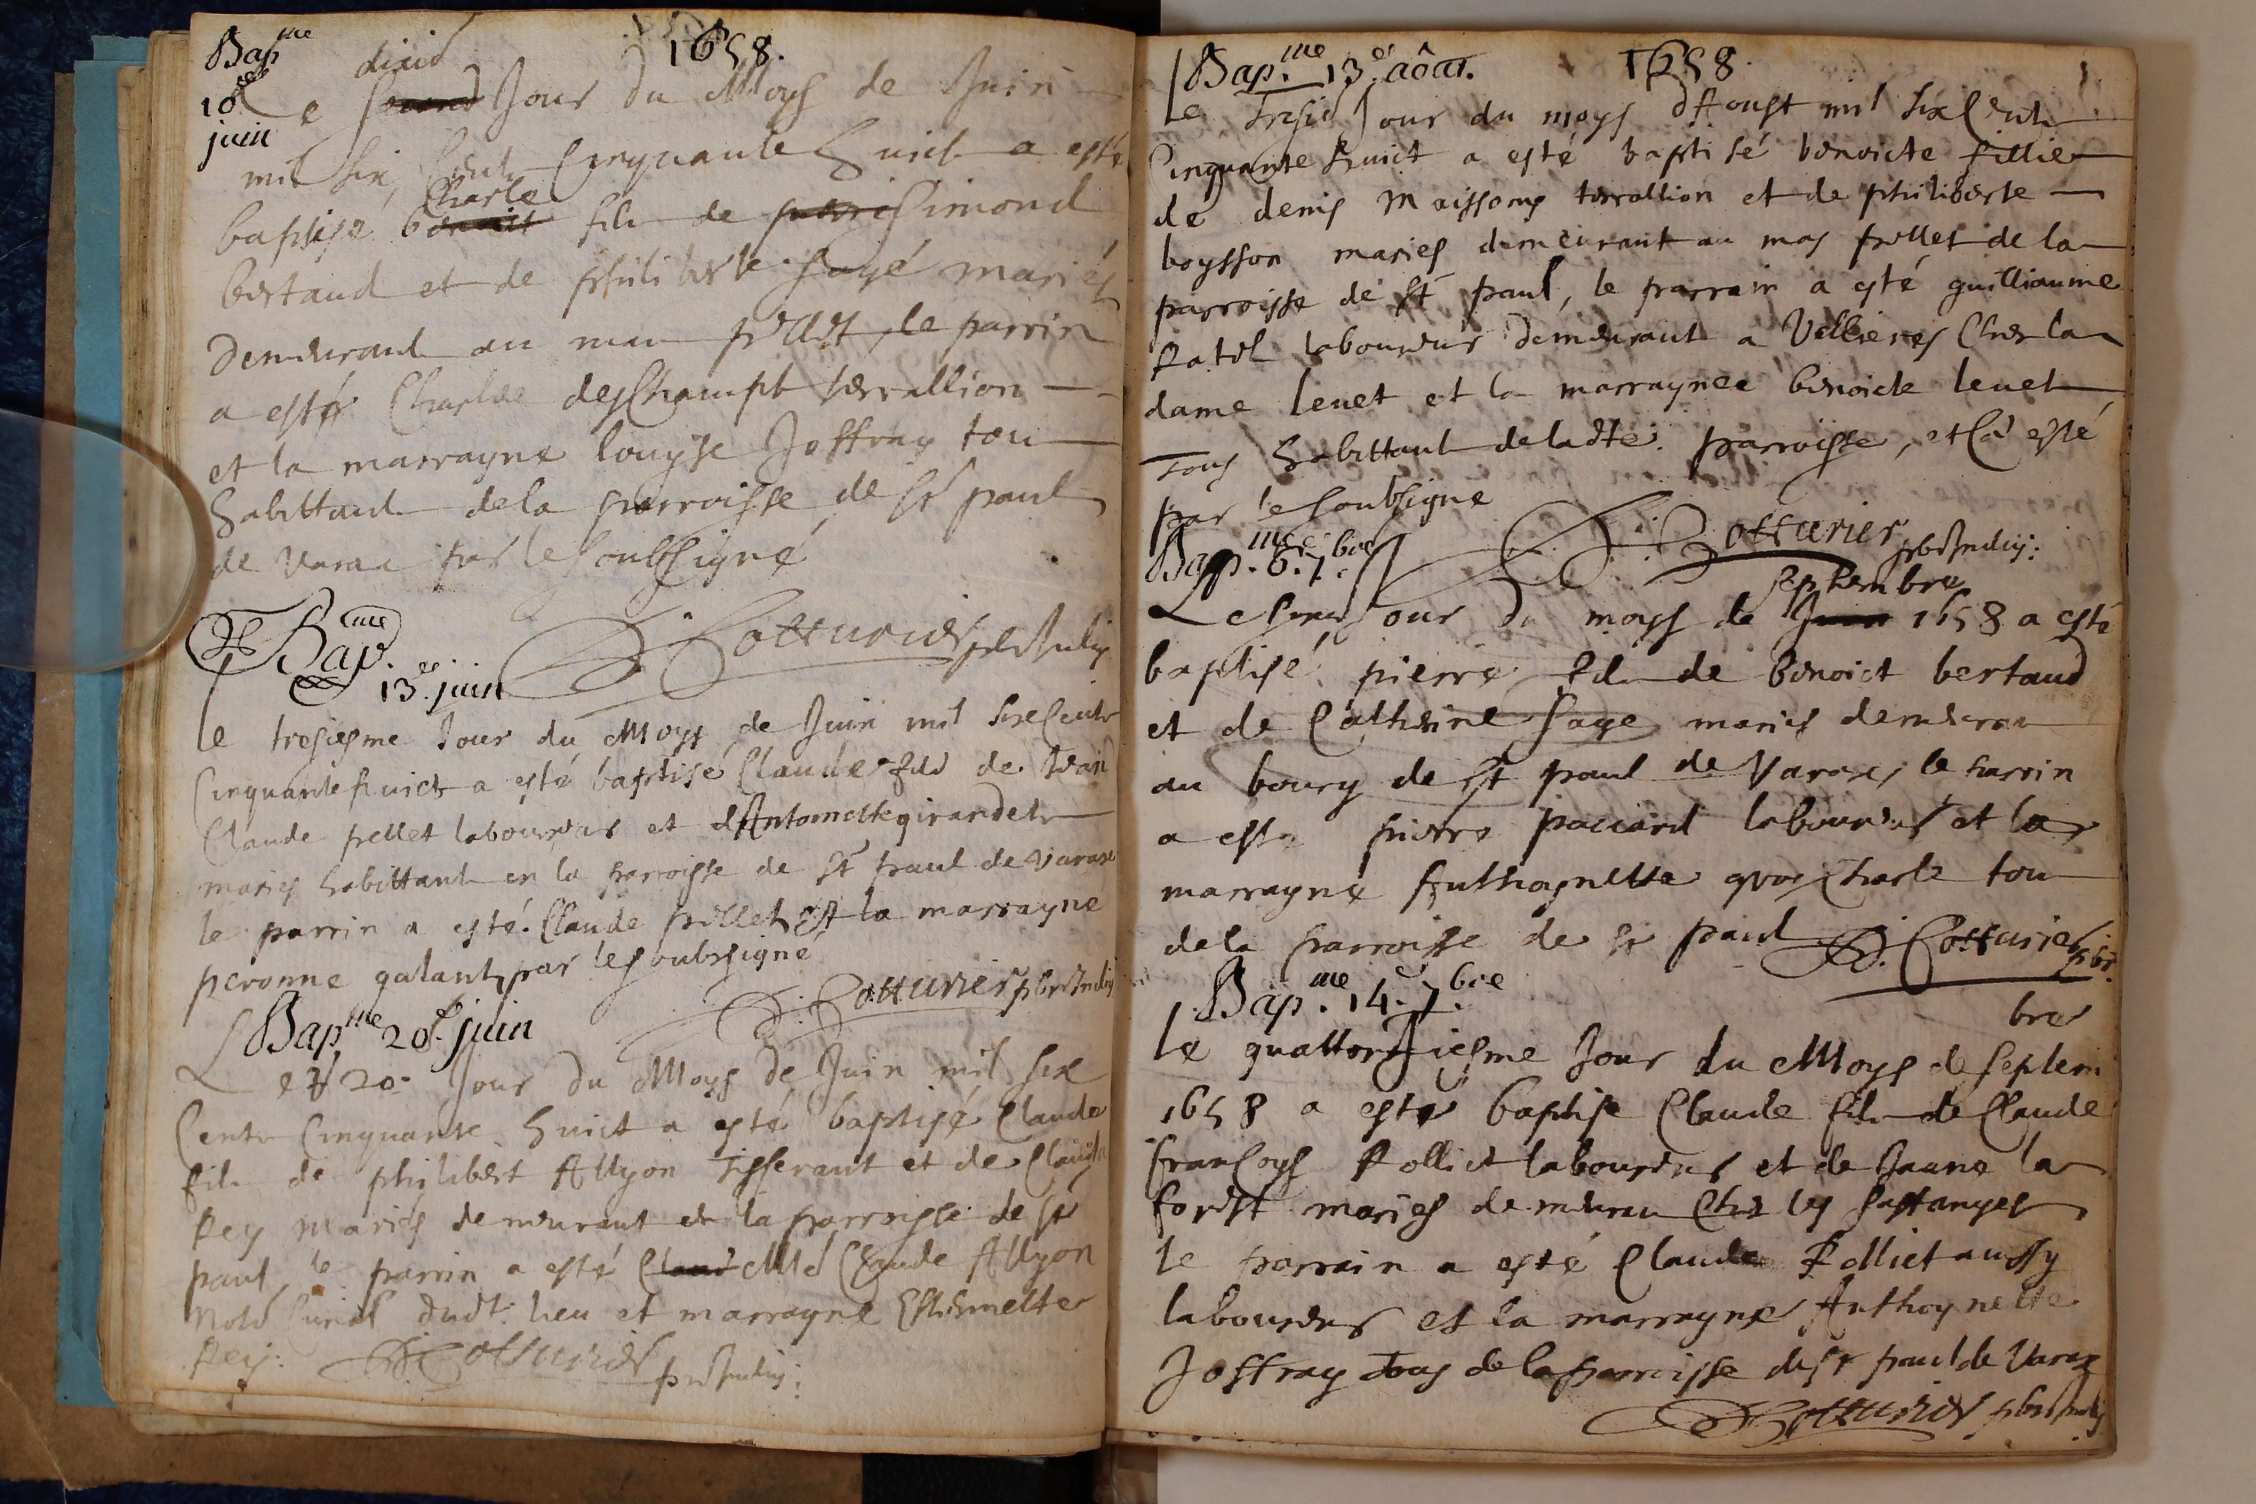 1658.
Bap.me
10e
juin
dixie
Le Jour du Moys de Juin
mil six Cents Cinquante huict a esté
Charle
baptise benoit fils de Simond
bertaud et de philiberte sayé mariés
demeurant au mas pellet, le parrin
a esté Charles desChampt terrallion
et la marrayne louyse Joffray tou
habittant de la parroisse de st paul
de Varax par le soubsigné
D. Cotturier pbr Indig
Bap.me
13e. juin
le tresiesme Jour du Moys de Juin mil six Cents
Cinquante huict a esté baptisé Claude fils de
Claude pellet laboureur et dAntoinette girandet
mariés habittant en la parroisse de st paul de varax
le parrin a esté Claude pellet et la marrayne
peronne galant par le soubsigné
D. Cotturier pbr Indig
Bap.me 20e. juin
Le 20e Jour du Moys de Juin mil six
Cents Cinquante huict a esté baptisé Claude
fils de philibert Allyon Tisserant et de Clauda
Rey mariés demeurant en la parroisse de st
paul, le parrin a esté Claude Allyon
dudt. lieu et marrayne Esthiennette
Rey:
D. Cotturier pbr Indig:
1658.
Bap.me 13e. aôut.
Le Jour du moys dAoust mil six Cents
Cinquante huict a esté baptisé benoicte fillie
de denis Maissony terrallion et de philiberte
boysson mariés demeurant au mas pellet de la
parroisse de st paul, le parrain a esté guilliaume
Ratel laboureur demeurant a Vellieres Chez la
dame leuet et la marraynee benoicte leuet
Tous habittant de ladte. parroisse, et Ca esté
par le soubsigne
D. Cotturier pbr Indig:
Bap.me 6e. 7.bre
septembre
Le Jour du moys de Juin 1658 a esté
baptisé pierre fils de benoict bertaud
et de Catherine saye mariés demeuran
au bourg de st paul de Varax, le parrin
a este pierre paccard laboureur et la
marrayne Anthoynette Charle tou
de la parroisse de st paul D. Cotturier pbr.
Bap.me 14.e 7.bre
bre
le quattorziesme Jour du Moys de Septem
1658 a esté baptise Claude fils de Claude
françoys Rolliet laboureur et de Jeanne la
forest mariés demeuran Chez les
le parrain a esté Claude Rolliet aussy
laboureur et la marrayne Anthoynette
Joffray Tous de la parroisse de st paul de Varax
D. Cotturier pbr Indig